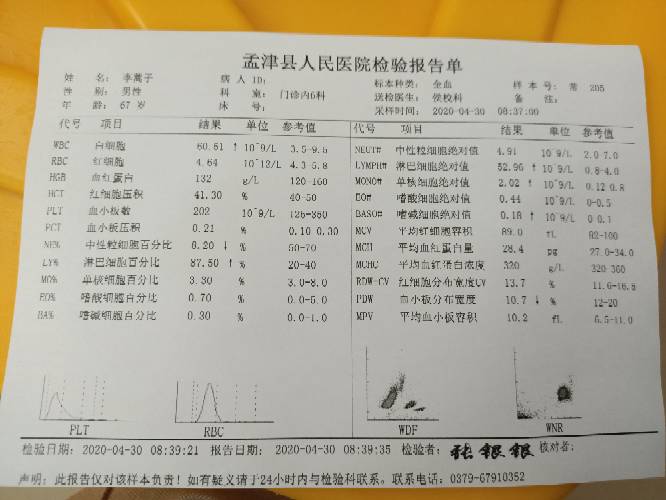 孟津县人民医院检验报告单
姓 名: 李荒子 病 人 ID: 标本种类: 全血 样 本 号: 常 205
性 别: 男性 科 室: 门诊内6科 送检医生: 侯校科 备 注:
年 龄: 67 岁 床 号: 采样时间: 2020-04-30 08:37:00
代号 项目 结果 单位 参考值 代号 项目 结果 单位 参考值
WBC 白细胞 60.61 ↑ 10^9/L 3.5-9.5 NEUT# 中性粒细胞绝对值 4.91 10^9/L 2.0-7.0
RBC 红细胞 4.64 10^12/L 4.3-5.8 LYMPH# 淋巴细胞绝对值 52.96 ↑ 10^9/L 0.8-4.0
HGB 血红蛋白 132 g/L 120-160 MONO# 单核细胞绝对值 2.02 ↑ 10^9/L 0.12-0.8
HCT 红细胞压积 41.30 % 40-50 EO# 嗜酸细胞绝对值 0.44 10^9/L 0-0.5
PLT 血小板数 202 10^9/L 125-350 BASO# 嗜碱细胞绝对值 0.18 ↑ 10^9/L 0-0.1
PCT 血小板压积 0.21 % 0.10-0.30 MCV 平均红细胞容积 89.0 fL 82-100
NE% 中性粒细胞百分比 8.20 ↓ % 50-70 MCH 平均血红蛋白量 28.4 pg 27.0-34.0
LY% 淋巴细胞百分比 87.50 ↑ % 20-40 MCHC 平均血红蛋白浓度 320 g/L 320-360
MO% 单核细胞百分比 3.30 % 3.0-8.0 RDW-CV 红细胞分布宽度CV 13.7 % 11.6-16.5
EO% 嗜酸细胞百分比 0.70 % 0.0-5.0 PDW 血小板分布宽度 10.7 ↓ % 12-20
BA% 嗜碱细胞百分比 0.30 % 0.0-1.0 MPV 平均血小板容积 10.2 fL 6.5-11.0
PLT RBC WDF WNR
检验日期: 2020-04-30 08:39:21 报告日期: 2020-04-30 08:39:35 检验者: 张银银 核对者:
声明: 此报告仅对该样本负责! 如有疑义请于24小时内与检验科联系。联系电话: 0379-67910352